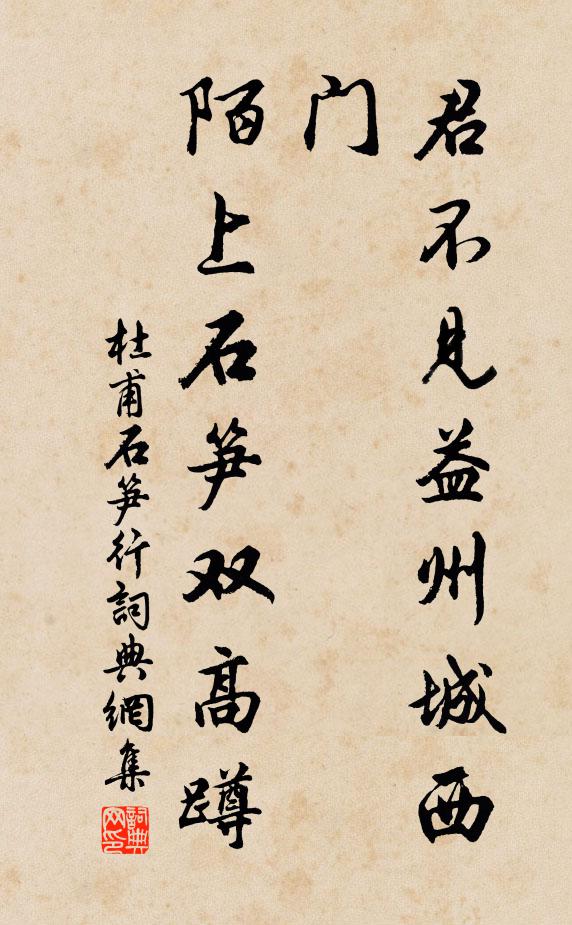 君不见益州城西
门
陌上石笋双高蹲
杜甫石笋行詞典網集
詞典网印